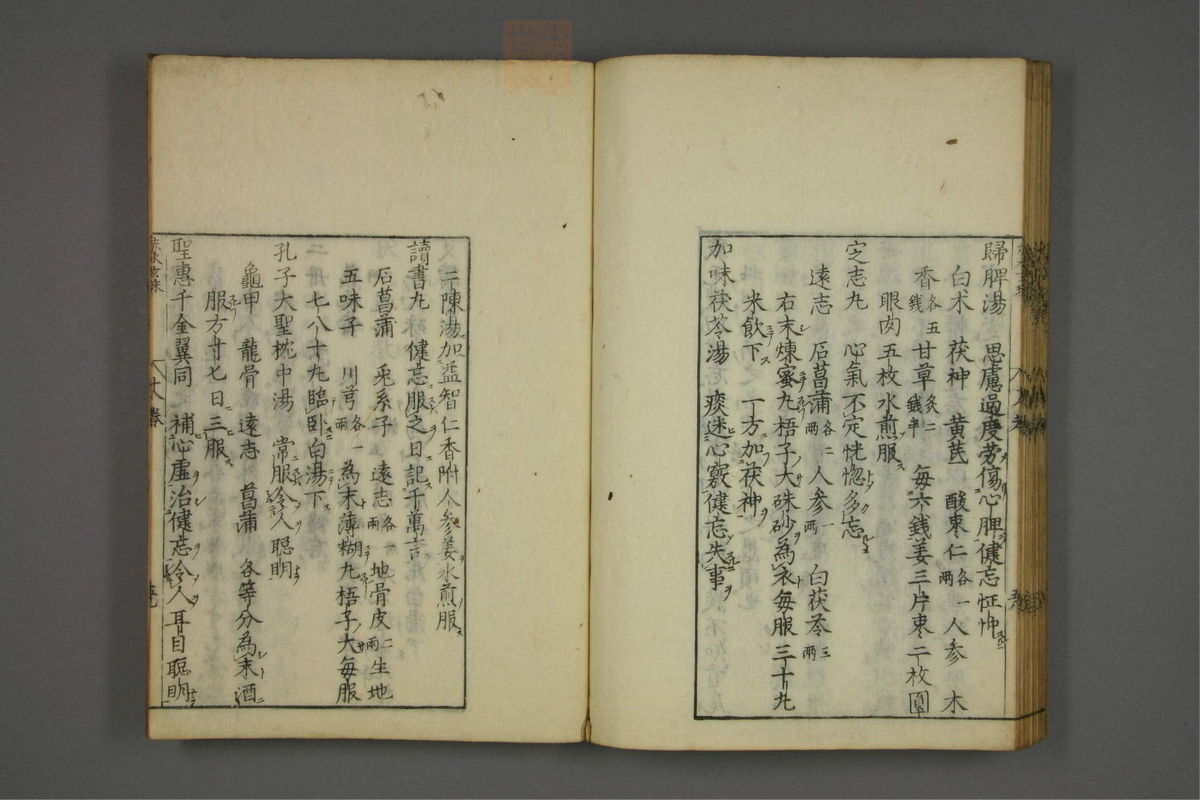 歸脾湯　思慮過度勞傷心脾健忘怔忡
白术　茯神　黄芪　酸棗仁各一兩人参　木
香各五錢甘草炙二錢半　毎六錢姜三片棗二枚圓
眼肉五枚水煎服
定志丸　心氣不定恍惚多忘
遠志　石菖蒲各二兩人参一兩　白茯苓三兩
右末煉蜜丸梧子大硃砂為衣毎服三十丸
米飲下　一方加茯神
加味茯苓湯　痰迷心竅健忘失事
二陳湯加益智仁香附人参姜水煎服
讀書丸　健忘服之日記千萬言
石菖蒲　兎糸子　遠志各一兩　地骨皮二兩生地
五味子　川芎各一兩　為末薄糊丸梧子大毎服
七八十丸臨卧白湯下
孔子大聖枕中湯　常服令人聡明
龜甲　龍骨　遠志　菖蒲　各等分為末酒
服方寸七日三服
聖惠千金翼同　補心虚治健忘令人耳目聡明